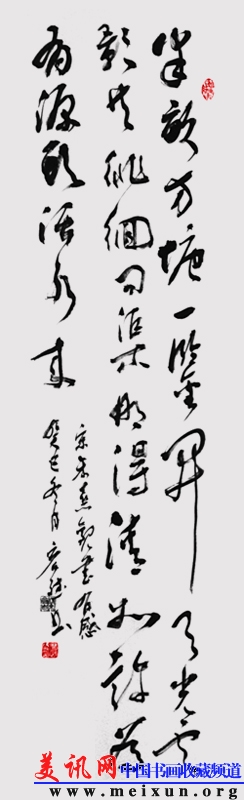 半畝方塘一鑒開天光雲
影共徘徊问渠那得清如許為
有源頭活水来
宋朱熹觀書有感
癸巳冬月
美讯网 中国书画收藏频道
www.meixun.org